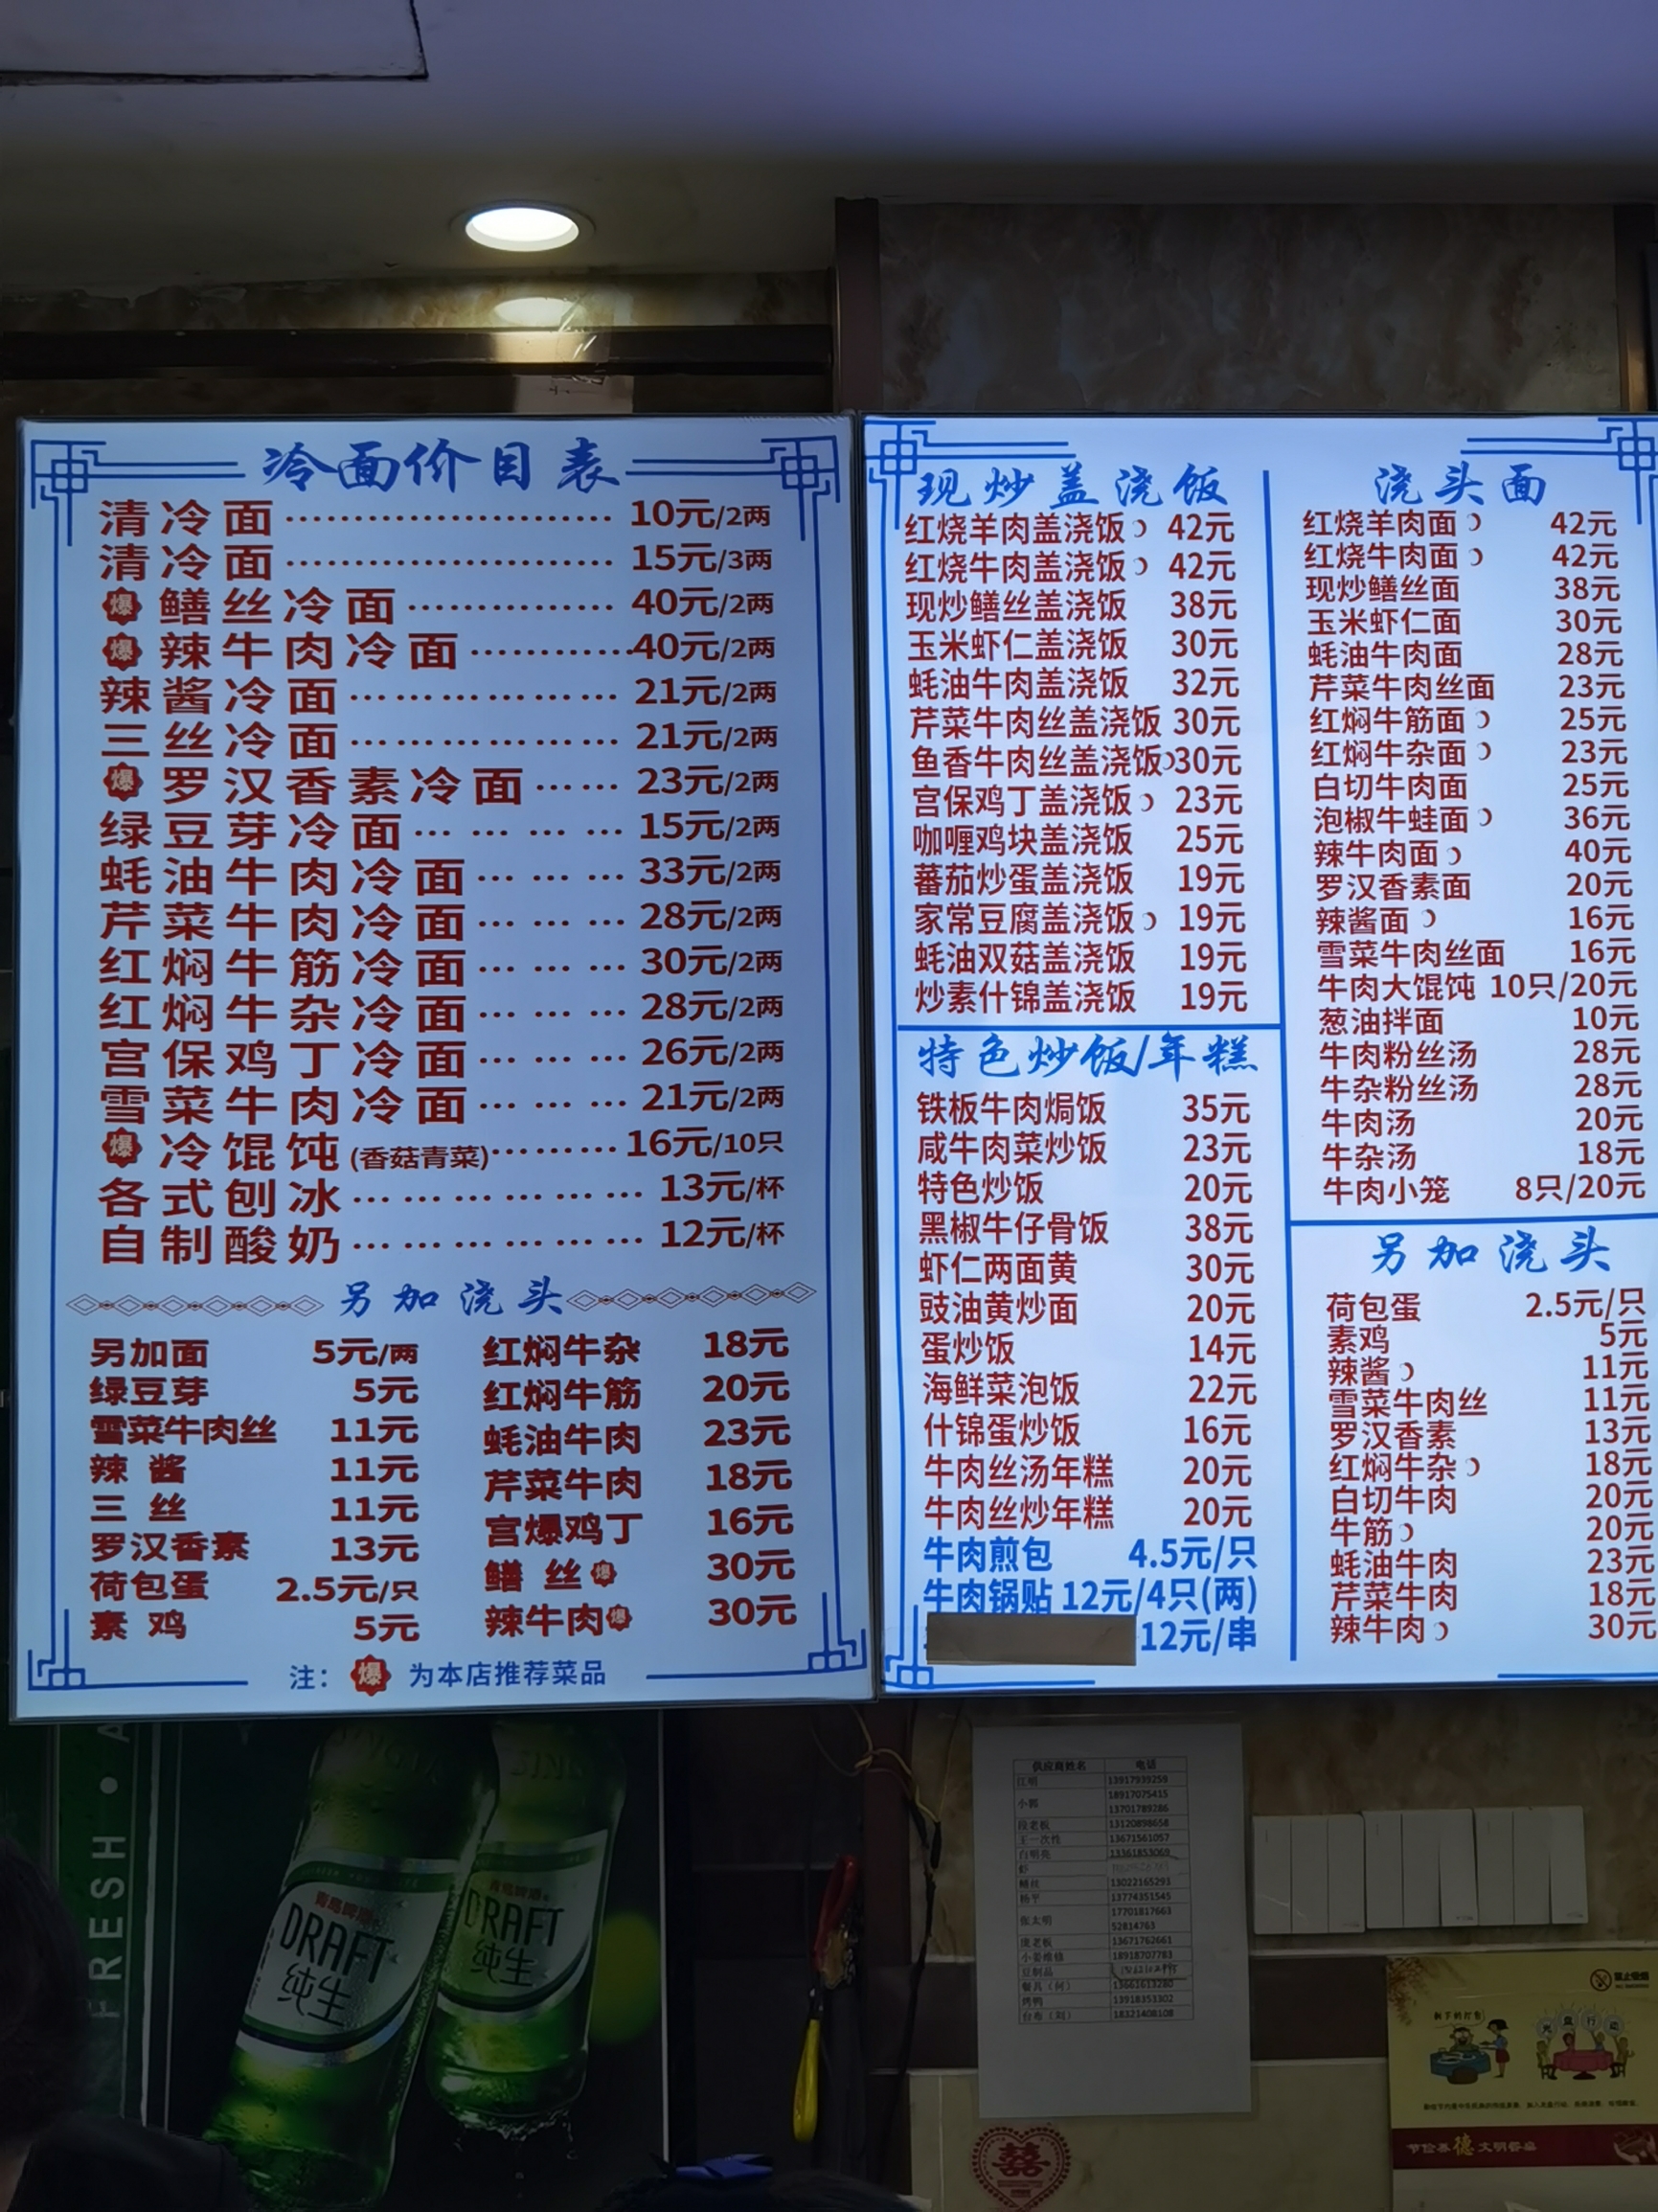 冷面价目表
清冷面 10元/2两
清冷面 15元/3两
爆 鳝丝冷面 40元/2两
爆 辣牛肉冷面 40元/2两
辣酱冷面 21元/2两
三丝冷面 21元/2两
爆 罗汉香素冷面 23元/2两
绿豆芽冷面 15元/2两
蚝油牛肉冷面 33元/2两
芹菜牛肉冷面 28元/2两
红焖牛筋冷面 30元/2两
红焖牛杂冷面 28元/2两
宫保鸡丁冷面 26元/2两
雪菜牛肉冷面 21元/2两
爆 冷馄饨(香菇青菜) 16元/10只
各式刨冰 13元/杯
自制酸奶 12元/杯
另加浇头
另加面 5元/两
绿豆芽 5元
雪菜牛肉丝 11元
辣酱 11元
三丝 11元
罗汉香素 13元
荷包蛋 2.5元/只
素鸡 5元
红焖牛杂 18元
红焖牛筋 20元
蚝油牛肉 23元
芹菜牛肉 18元
宫爆鸡丁 16元
鳝丝 爆 30元
辣牛肉 爆 30元
注： 爆 为本店推荐菜品
现炒盖浇饭
红烧羊肉盖浇饭 42元
红烧牛肉盖浇饭 42元
现炒鳝丝盖浇饭 38元
玉米虾仁盖浇饭 30元
蚝油牛肉盖浇饭 32元
芹菜牛肉丝盖浇饭 30元
鱼香牛肉丝盖浇饭 30元
宫保鸡丁盖浇饭 23元
咖喱鸡块盖浇饭 25元
蕃茄炒蛋盖浇饭 19元
家常豆腐盖浇饭 19元
蚝油双菇盖浇饭 19元
炒素什锦盖浇饭 19元
特色炒饭/年糕
铁板牛肉焗饭 35元
咸牛肉菜炒饭 23元
特色炒饭 20元
黑椒牛仔骨饭 38元
虾仁两面黄 30元
豉油黄炒面 20元
蛋炒饭 14元
海鲜菜泡饭 22元
什锦蛋炒饭 16元
牛肉丝汤年糕 20元
牛肉丝炒年糕 20元
牛肉煎包 4.5元/只
牛肉锅贴 12元/4只(两)
12元/串
浇头面
红烧羊肉面 42元
红烧牛肉面 42元
现炒鳝丝面 38元
玉米虾仁面 30元
蚝油牛肉面 28元
芹菜牛肉丝面 23元
红焖牛筋面 25元
红焖牛杂面 23元
白切牛肉面 25元
泡椒牛蛙面 36元
辣牛肉面 40元
罗汉香素面 20元
辣酱面 16元
雪菜牛肉丝面 16元
牛肉大馄饨 10只/20元
葱油拌面 10元
牛肉粉丝汤 28元
牛杂粉丝汤 28元
牛肉汤 20元
牛杂汤 18元
牛肉小笼 8只/20元
另加浇头
荷包蛋 2.5元/只
素鸡 5元
辣酱 11元
雪菜牛肉丝 11元
罗汉香素 13元
红焖牛杂 18元
白切牛肉 20元
牛筋 20元
蚝油牛肉 23元
芹菜牛肉 18元
辣牛肉 30元
FRESH
青岛啤酒
DRAFT
纯生
青岛啤酒
DRAFT
纯生
供应商姓名 电话
江明 13917939259
小郭 18917075415
13701789286
段老板 13120898658
王一次性 13671561057
白明亮 13361853069
虾
鳝丝 13022165291
杨平 13774351545
张太明 17701817663
52814763
庞老板 13671762661
小姜维修 18918707783
豆制品
餐具（何） 13661613280
烤鸭 13918353302
台布（刘） 18321408108
禁止吸烟
剩下的打包
光盘行动
节俭养德 文明餐桌
囍